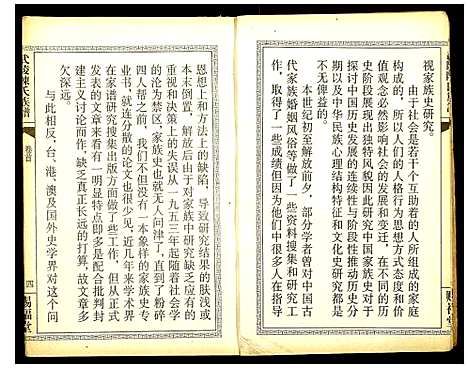 視家族史研究。
由于社会是若干个互助着的人所組成的家庭
构成的，所以人们的人格行为思想方式态度和价
值观念必然影响社会的发展和变迁，在不同的历
史阶段展示出独特风貌因此研究中国家族史对于
探讨中国历史发展的连续性与阶段性推动历史分
期以及中华民族心理结构特征和文化史研究都是
大有俾益的。
本世纪初至解放前夕，部分学者曾对中国古
代家族婚姻风俗等做了一些资料搜集和研究工
作，取得了一些成绩但因为他们中很多人在指导
賜福堂
武陵陳氏族譜
卷首
四
賜福堂
思想上和方法上的缺陷，导致研究结果的肤浅或
本末倒置，解放后由于对家族中研究缺乏应有的
重视和决策上的失误从一九五三年起随着社会学
的取消沦为禁区，家族史也就无人问津了，直到了粉碎
四人帮之前，我们不但没有一本象样的家族史专
业书，就连有影响的文章也很少见，近几年来学术界
在家谱研究搜集出版方面做了些工作，但从正式
发表的文章来看有一明显特点即多是配合批判封
建主义讨论而作，缺乏真正长远的打算，故文章多
欠深远。
与此相反，台、港、澳及国外史学界对这个问